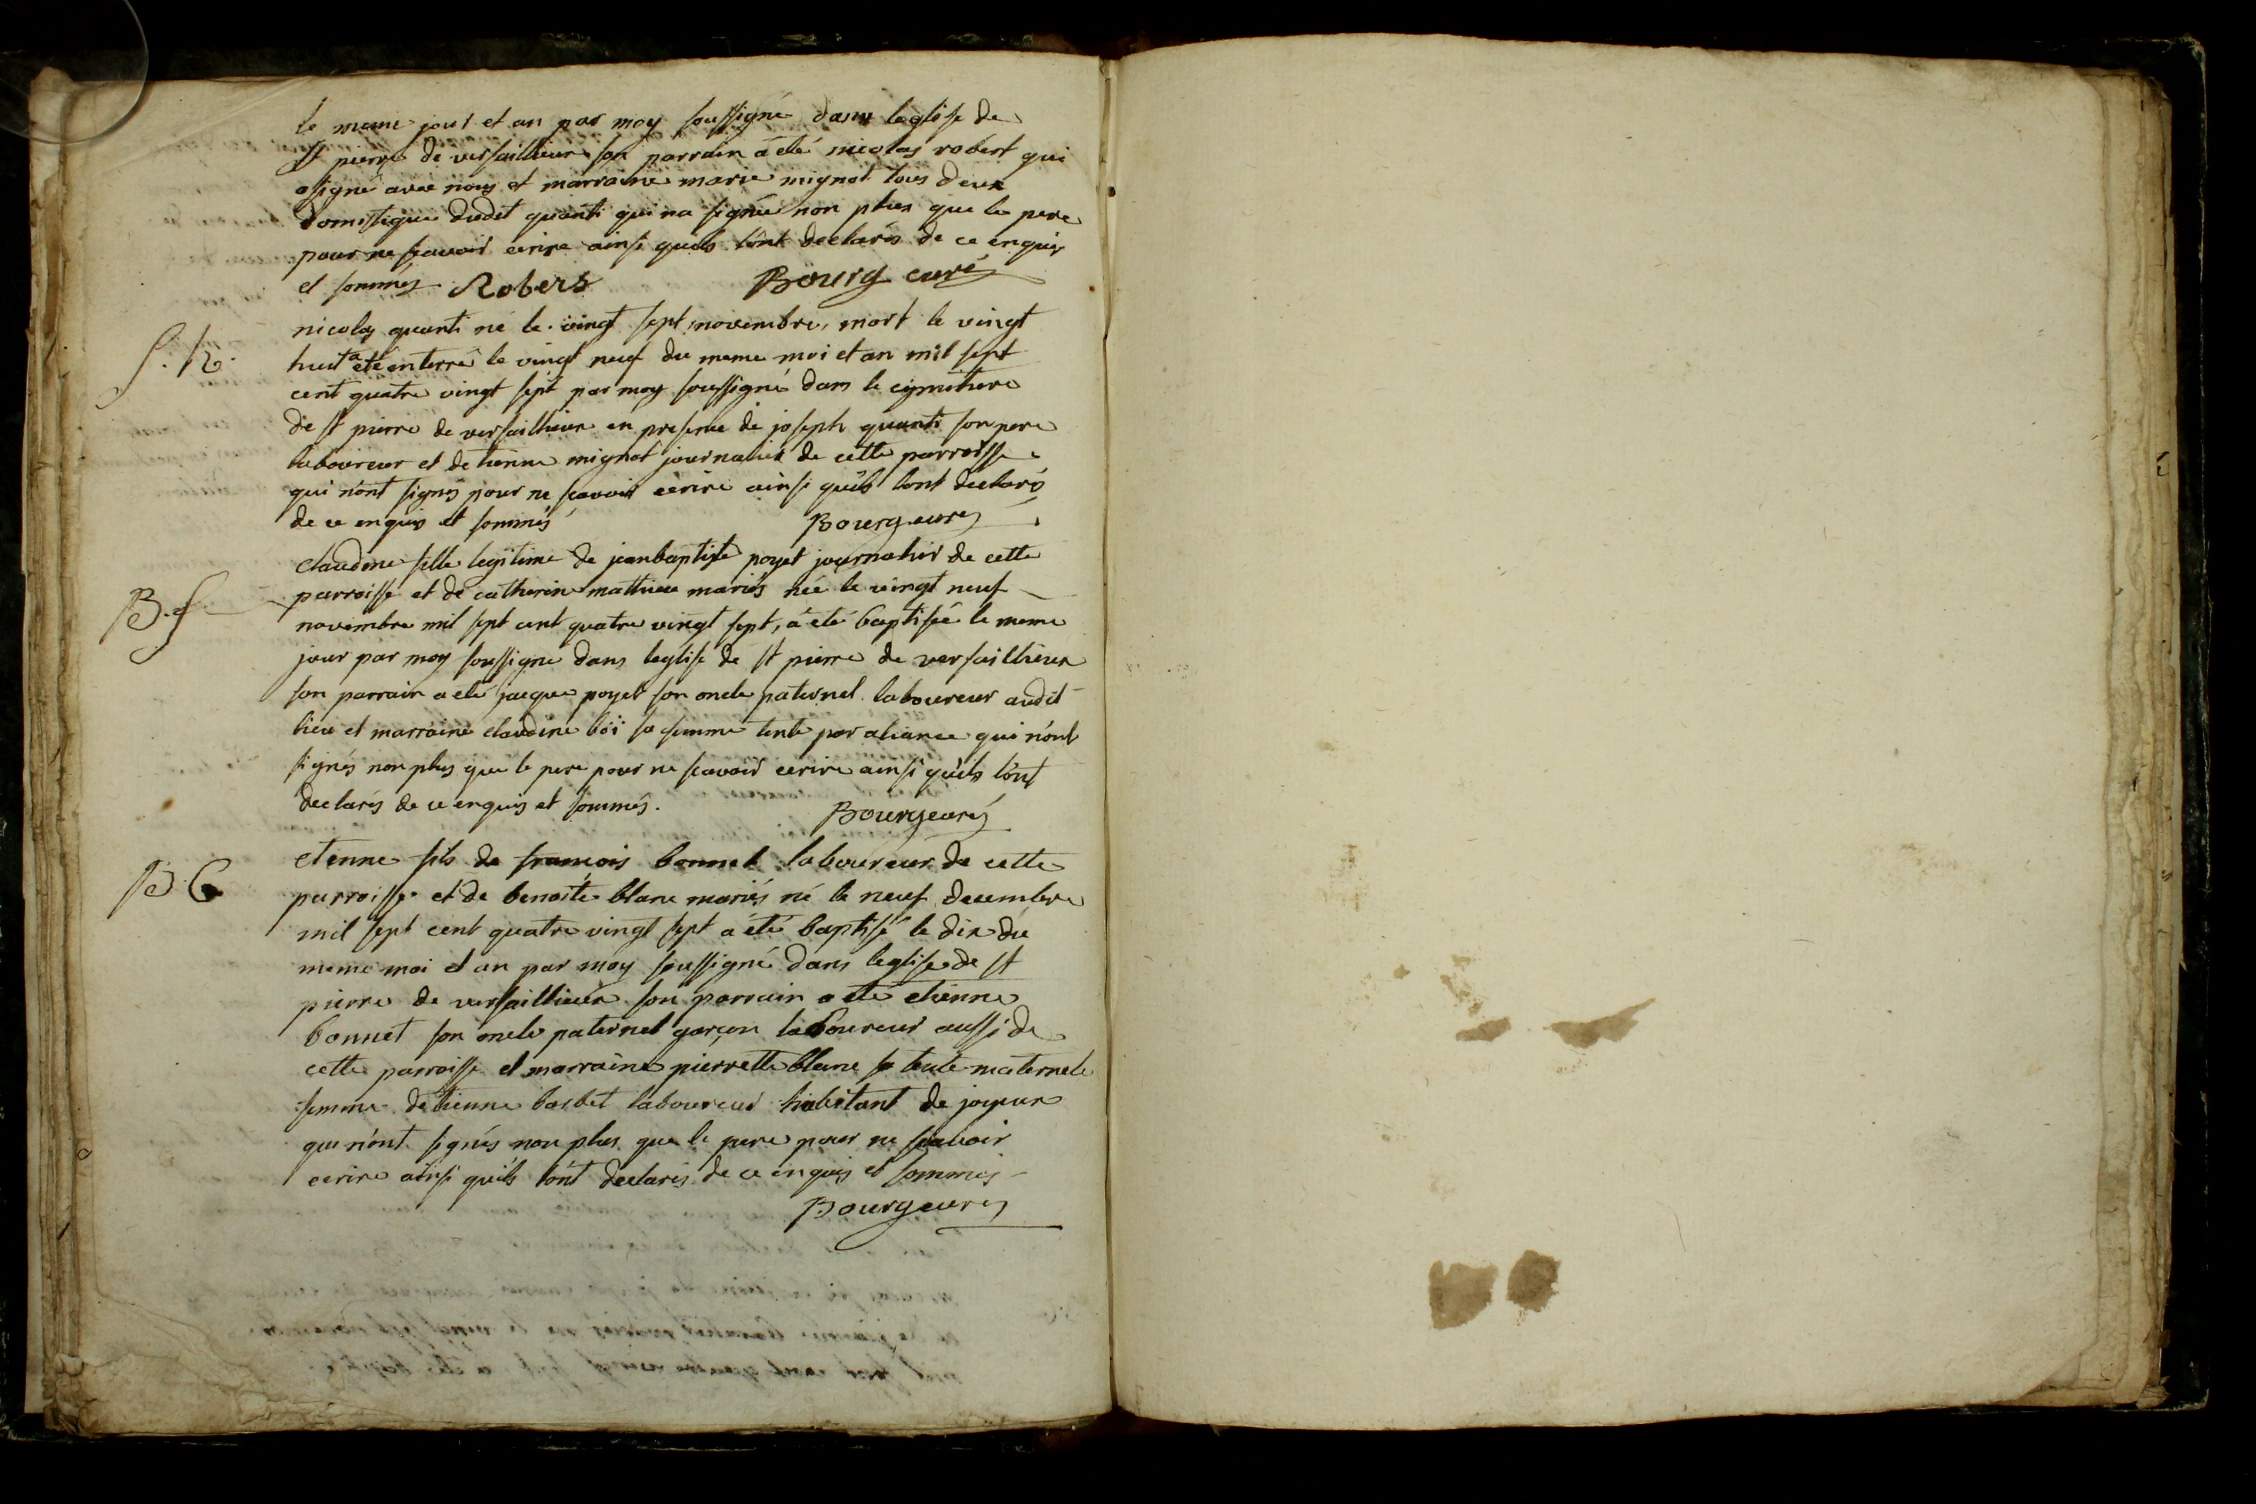 le meme jour et an par moy soussigné dans leglise de
St pierre de versaillieux son parrain á eté nicolas robert qui
a signé avec nous et marraine marie mignot tous deux
domestique dudit quanti qui na signée non plus que le pere
pour ne scavoir ecrire ainsi quils l'ont declarés de ce enquis
et sommés Robers Bourg curé
nicolas quanti né le vingt sept novembre, mort le vingt
S. h.
huit a eté enterré le vingt neuf du meme moi et an mil sept
cent quatre vingt sept par moy soussigné dans le cymitiere
de st pierre de versaillieux en presence de joseph quanti son pere
laboureur et detienne mignot journalier de cette parroisse
qui n'ont signés pour ne scavoir ecrire ainsi quils lont declarés
de ce enquis et sommés Bourg curé
claudine fille legitime de jean baptiste poyet journalier de cette
B. f
parroisse et de catherine mathieu mariés née le vingt neuf
novembre mil sept cent quatre vingt sept, á été baptisée le meme
jour par moy soussigné dans leglise de st pierre de versaillieux
son parrain a eté jacque poyet son oncle paternel laboureur audit
lieu et marraine claudine boï sa femme tente par aliance qui n'ont
signés non plus que le pere pour ne scavoir ecrire ainsi quils l'ont
declarés de ce enquis et sommés. Bourg curé
etienne fils de francois bonnet laboureur de cette
B. G
parroisse et de benoite blanc mariés né le neuf decembre
mil sept cent quatre vingt sept a été baptisé le dix du
meme moi et an par moy soussigné dans leglise de st
pierre de versaillieux son parrain a eté etienne
bonnet son oncle paternel garçon laboureur aussi de
cette parroisse et marraine pierrette blanc sa tente maternele
femme detienne barbet laboureur habitant de joyeux
qui n'ont signés non plus que le pere pour ne scavoir
ecrire ainsi quils l'ont declarés de ce enquis et sommés
Bourg curé